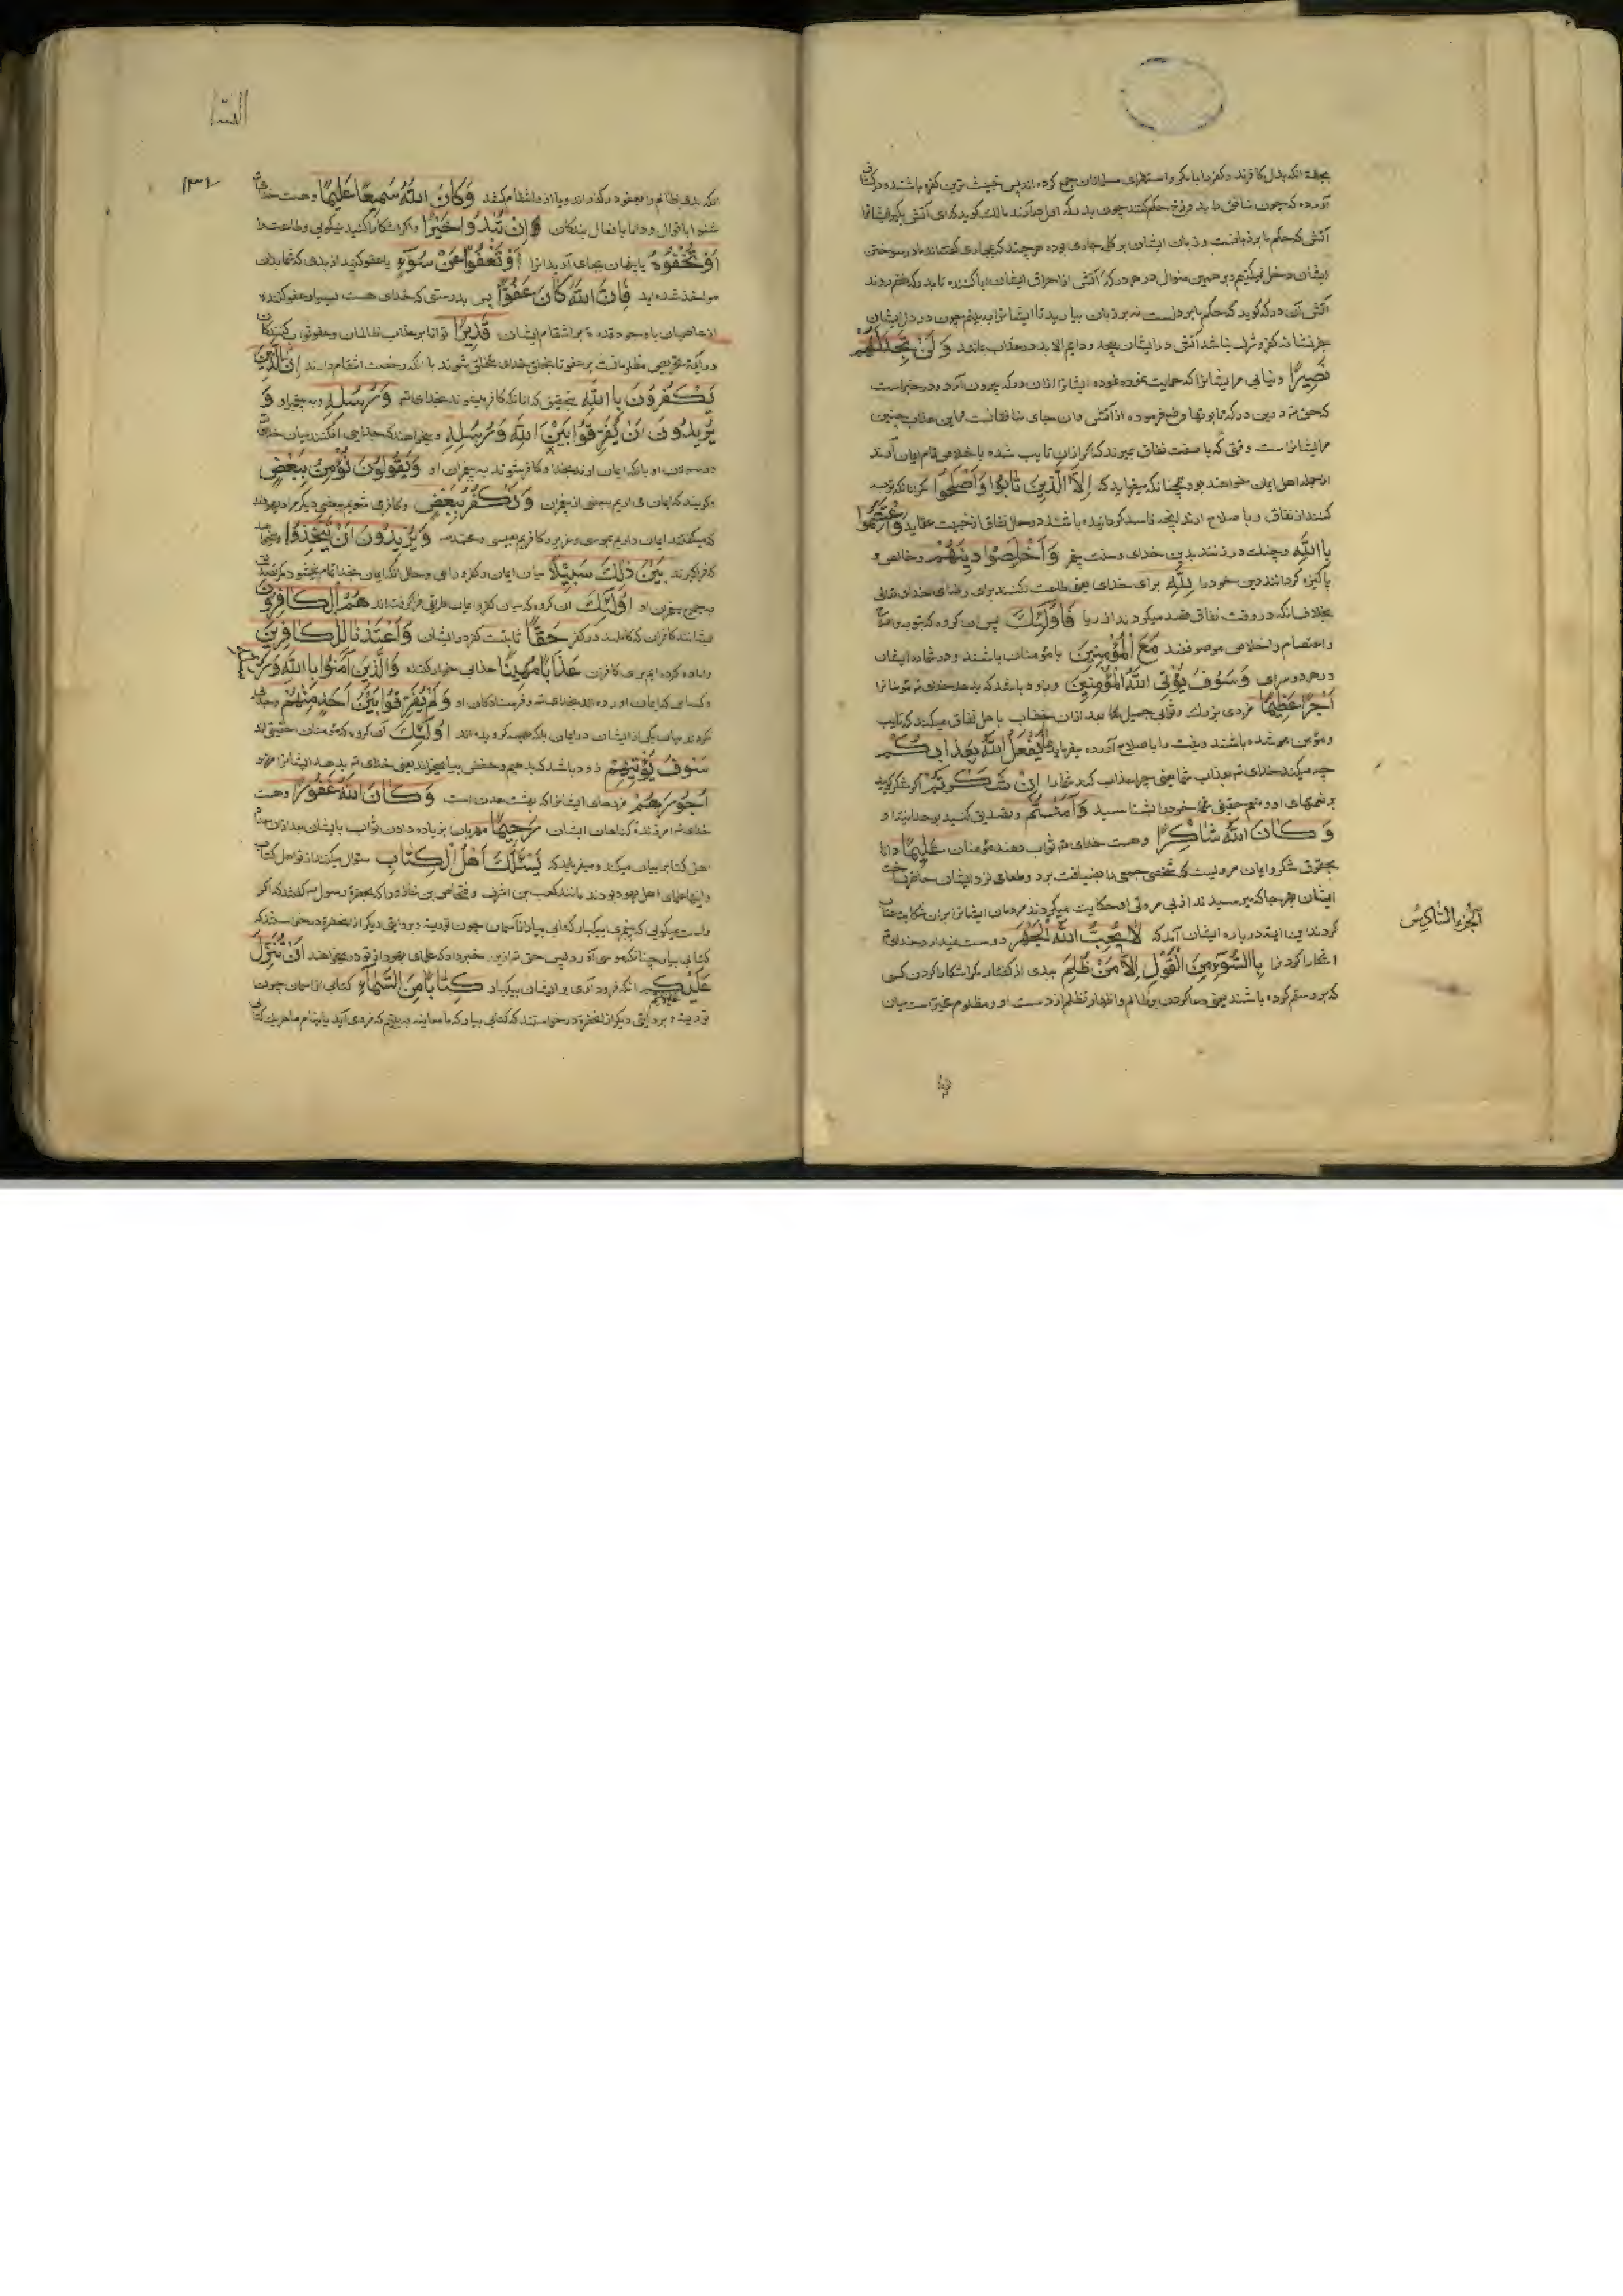 بجهة انکه بدل کافرند و کفر را با مکر و استهزای مسلمانان جمع کرده اند پس خبیث ترین کفره باشند و در
آورده که چون منافق را بدوزخ حکم کنند چون بدرکه اول در آرند مالک کوید که ای آتش بکیر ایشانرا
آتش کوید حکم ما بر زبانست و زبان ایشان بر کلمه جاری بوده هر چند که مجازی گفته اند ما در سوختن
ایشان دخل نمیکنیم و بر همین منوال در هر درکه آتش از احراق ایشان ابا کننده تا بدرکه هفتم روند
آتش آن درکه کوید که حکم ما بر دلست نه بر زبان بیارید تا ایشانرا به بینم چون در دل ایشان
جز نشانه کفر و شرک نباشد آتش در ایشان پیچد و دایم الابد در عذاب بمانند وَلَنْ تَجِدَ لَهُمْ
نَصِيرًا و نیابی مر ایشانرا که حمایت نموده ایشانرا ازان درکه بیرون آرد و در خبر است
که حق در درکه تابوتها وضع فرموده از آتش و آن جای منافقانست و این عذاب چنین
مر ایشانراست وقتی که با صفت نفاق بمیرند که اگر ازان تایب شده باخلاص تمام ایمان آرند
از جمله اهل ایمان خواهند بود چنانکه میفرماید که إِلَّا الَّذِينَ تَابُوا وَأَصْلَحُوا مگر آنانکه توبه
کنند از نفاق و با صلاح آرند آنچه فاسد کردانیده باشند در حال نفاق از خبیث عقاید وَاعْتَصَمُوا
بِاللَّهِ و چنک در زنند بدین خدای و سنت پیغمبر وَأَخْلَصُوا دِينَهُمْ و خالص و
پاکیزه کردانند دین خود را لِلَّهِ برای خدای یعنی طاعت نکنند برای رضای خدای تعالی
بخلاف انکه در وقت نفاق قصد میکردند از ریا فَأُولَئِكَ پس آن کروه که بتوبه و اصلاح
و اعتصام و اخلاص موصوفند مَعَ الْمُؤْمِنِينَ با مؤمنان باشند و در شماره ایشان
در هر دو سرای وَسَوْفَ يُؤْتِ اللَّهُ الْمُؤْمِنِينَ و زود باشد که بدهد خدای تع مؤمنانرا
أَجْرًا عَظِيمًا مزدی بزرک و ثوابی جمیل بعد ازان خطاب با اهل نفاق میکند که تایب
و مؤمن شده باشند و نیت را باصلاح آورده میفرماید مَا يَفْعَلُ اللَّهُ بِعَذَابِكُمْ
چه میکند خدای تع بعذاب شما یعنی چرا عذاب کند شما را إِنْ شَكَرْتُمْ اگر شکر کویید
بر نعمتهای او و منعم حقیقی خود را بشناسید وَآمَنْتُمْ و تصدیق کنید بوحدانیت او
وَكَانَ اللَّهُ شَاكِرًا و هست خدای تع ثواب دهنده مؤمنان عَلِيمًا دانا
بحقوق شکر و ایمان مرویست که شخصی جمعی را بضیافت برد و طعامی نزد ایشان حاضر نساخت
ایشان بهر جا که میرسیدند از بی مروتی او حکایت میکردند مردمان ایشانرا بران شکایت عتاب
کردند این آیه درباره ایشان آمد که لَا يُحِبُّ اللَّهُ الْجَهْرَ دوست نمیدارد خدای تع
آشکارا کردن را بِالسُّوءِ مِنَ الْقَوْلِ إِلَّا مَنْ ظُلِمَ ببدی از گفتار مکر آشکارا کردن کسی
که برو ستم کرده باشند یعنی دعا کردن بر ظالم و اظهار تظلم از دست او و مظلوم مخیر است میان
الجزء السادس
النساء
۱۳۴
انکه بدی ظالم را بعفو درگذراند و یا ازو انتقام کشد وَكَانَ اللَّهُ سَمِيعًا عَلِيمًا و هست خدای
شنوا باقوال و دانا بافعال بندکان إِنْ تُبْدُوا خَيْرًا اگر آشکارا کنید نیکویی و طاعت را
أَوْ تُخْفُوهُ یا پنهان بجای آرید آنرا أَوْ تَعْفُوا عَنْ سُوءٍ یا عفو کنید از بدی که شما بدان
مواخذ شده اید فَإِنَّ اللَّهَ كَانَ عَفُوًّا پس بدرستی که خدای هست بسیار عفو کننده
از عاصیان با وجود قدرت بر انتقام ایشان قَدِيرًا توانا بر عذاب ظالمان و عفو
و این آیة تحریص مظلومانست بر عفو تا بتخلق خدای متخلق شوند با انکه رخصت انتقام دارند إِنَّ الَّذِينَ
يَكْفُرُونَ بِاللَّهِ بتحقیق که آنانکه کافر میشوند بخدای تع وَرُسُلِهِ و به پیغمبران او وَ
يُرِيدُونَ أَنْ يُفَرِّقُوا بَيْنَ اللَّهِ وَرُسُلِهِ و میخواهند که جدایی افکنند میان خدای
و رسولان او بانکه ایمان آرند بخدا و کافر شوند به پیغمبران او وَيَقُولُونَ نُؤْمِنُ بِبَعْضٍ
و گویند که ایمان می آریم ببعضی از پیغمبران وَنَكْفُرُ بِبَعْضٍ و کافر می شویم ببعضی دیگر مراد یهودند
که میگفتند ایمان داریم بموسی و عزیر و کافریم بعیسی و محمد وَيُرِيدُونَ أَنْ يَتَّخِذُوا و میخواهند
که فراگیرند بَيْنَ ذَلِكَ سَبِيلًا میان ایمان و کفر راهی و حال آنکه ایمان بخدا تمام نمیشود مکر بتصدیق
بجمیع پیغمبران او أُولَئِكَ آن کروه که میان کفر و ایمان طریقی فرا گرفته اند هُمُ الْكَافِرُونَ
ایشانند کافران که کاملند در کفر حَقًّا ثابتست کفر در ایشان وَأَعْتَدْنَا لِلْكَافِرِينَ
و آماده کرده ایم برای کافران عَذَابًا مُهِينًا عذابی خوار کننده وَالَّذِينَ آمَنُوا بِاللَّهِ وَرُسُلِهِ
و کسانی که ایمان آورده اند بخدای تع و فرستادکان او وَلَمْ يُفَرِّقُوا بَيْنَ أَحَدٍ مِنْهُمْ و جدا
نکردند میان یکی از ایشان در ایمان بلکه بهمه گرویده اند أُولَئِكَ آن کروه که مؤمنان حقیقی اند
سَوْفَ يُؤْتِيهِمْ زود باشد که بدهیم و حفص بیا میخواند یعنی خدای تع بدهد ایشانرا
أُجُورَهُمْ مزدهای ایشانرا که بهشت عدن است وَكَانَ اللَّهُ غَفُورًا و هست
خدای تع آمرزنده کناهان ایشان رَحِيمًا مهربان بزیاده دادن ثواب بایشان بعد ازان
اهل کتاب بیان میکند و میفرماید که يَسْأَلُكَ أَهْلُ الْكِتَابِ سؤال میکنند از تو اهل کتاب
و اینها علمای اهل یهود بودند مانند کعب بن اشرف و فنحاص بن عازورا که بحضرة رسول گفتند که اگر
راست میگویی که پیغمبری بیکبار کتابی بیار از آسمان چون توریة و بروایتی دیگر از انحضرة درخواستند که
کتابی بیار چنانکه موسی آورد پس حق تع ازین خبر داد که علمای یهود از تو در میخواهند أَنْ تُنَزِّلَ
عَلَيْهِمْ انکه فرود آری بر ایشان بیکبار كِتَابًا مِنَ السَّمَاءِ کتابی از آسمان چون
توریة و بروایتی دیگر از انحضرة درخواستند که کتابی بیار که ما معاینه به بینیم که فرود می آید یا بنام ما هر یک